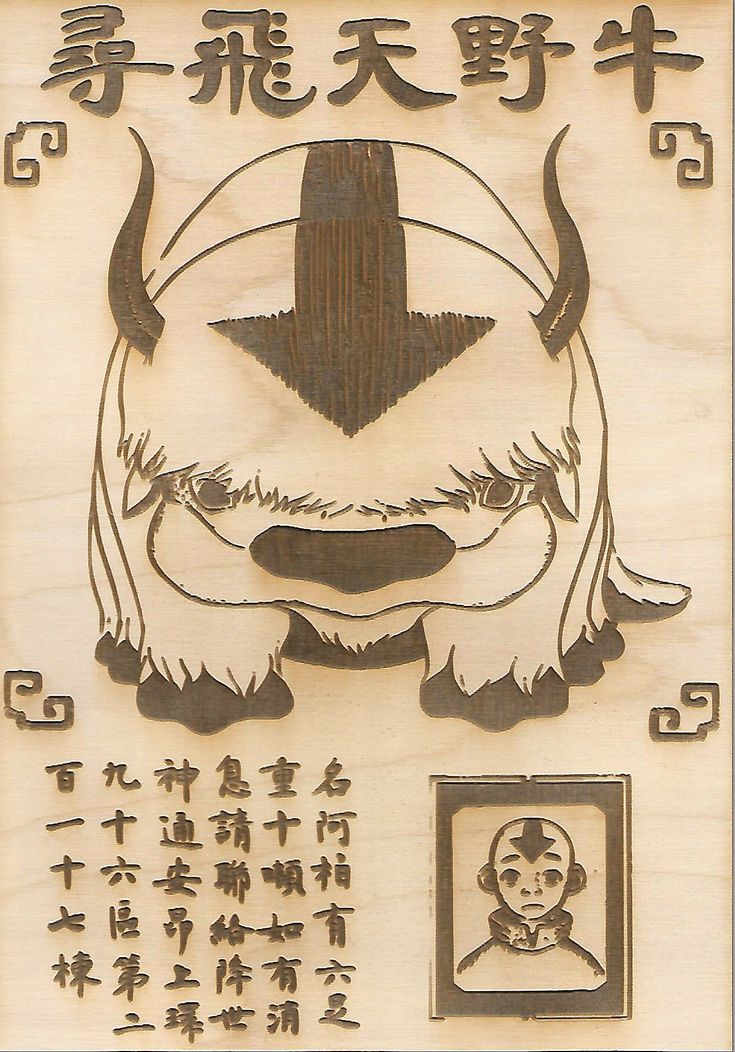 尋飛天野牛
名阿柏有六足
重十噸如有消
息請聯絡降世
神通安昂上環
九十六區第二
百一十七棟